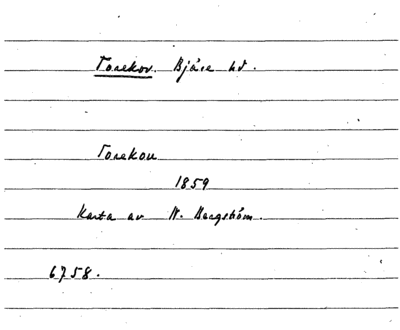 Torekov. Bjäre hd.
Torekov
1859
Karta av W. Bergström.
6758.